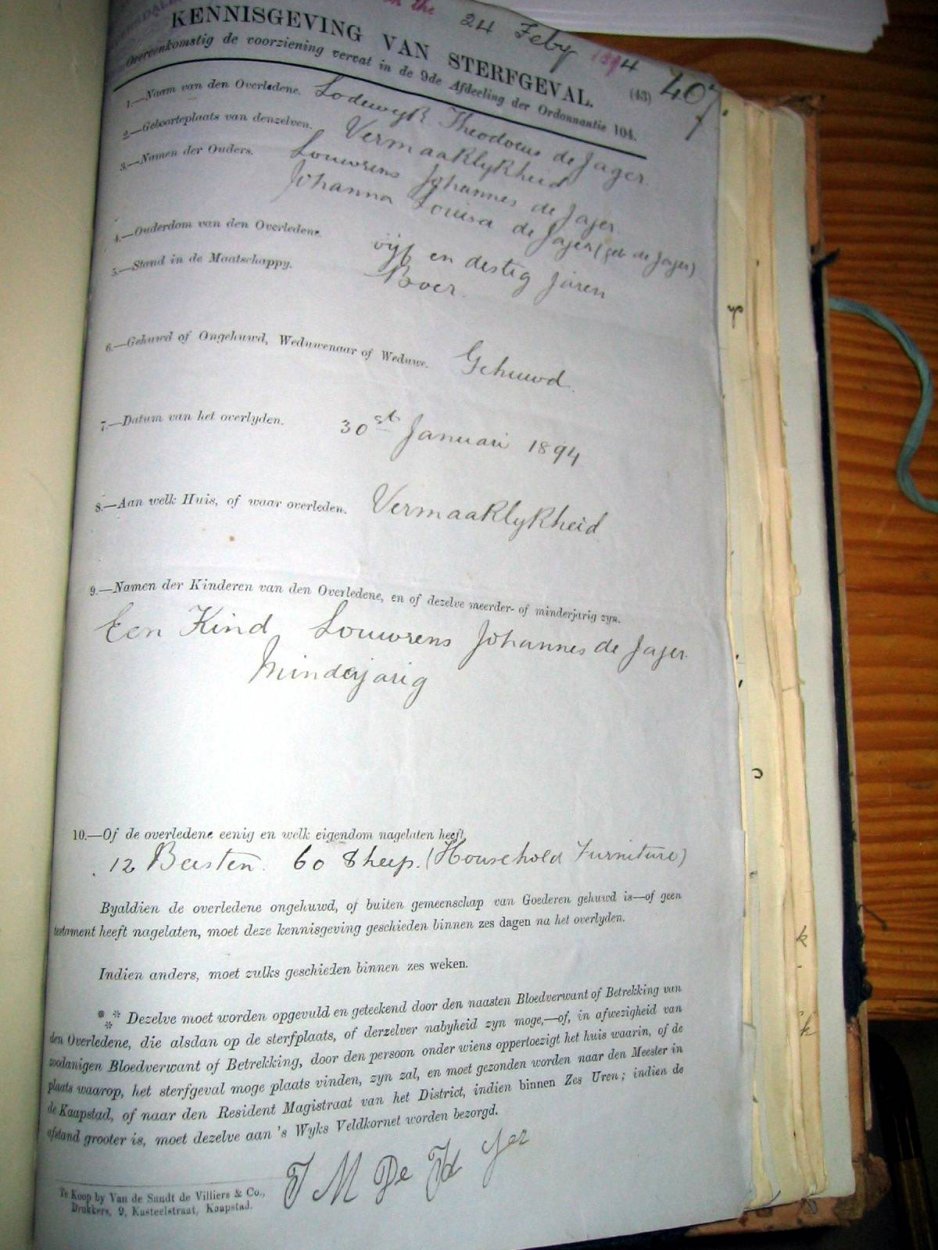 n the 24 Feby 1894
KENNISGEVING VAN STERFGEVAL. (43) 407
Overeenkomstig de voorziening vervat in de 9de Afdeeling der Ordonnantie 104.
1.—Naam van den Overledene. Lodewyk Theodorus de Jager
2.—Geboorteplaats van denzelven. Vermaaklykheid
3.—Namen der Ouders. Louwrens Johannes de Jager
Johanna Louisa de Jager (geb de Jager)
4.—Ouderdom van den Overledene. vyf en destig Jaren
5.—Stand in de Maatschappy. Boer.
6.—Gehuwd of Ongehuwd, Weduwenaar of Weduwe. Gehuwd.
7.—Datum van het overlyden. 30st Januari 1894
8.—Aan welk Huis, of waar overleden. Vermaaklykheid
9.—Namen der Kinderen van den Overledene, en of dezelve meerder- of minderjarig zyn.
Een Kind Louwrens Johannes de Jager
Minderjarig
10.—Of de overledene eenig en welk eigendom nagelaten heeft,
12 Beesten. 60 Sheep. (Household Furniture)
Byaldien de overledene ongehuwd, of buiten gemeenschap van Goederen gehuwd is—of geen
testament heeft nagelaten, moet deze kennisgeving geschieden binnen zes dagen na het overlyden.
Indien anders, moet zulks geschieden binnen zes weken.
*** Dezelve moet worden opgevuld en geteekend door den naasten Bloedverwant of Betrekking van
den Overledene, die alsdan op de sterfplaats, of derzelver nabyheid zyn moge,—of, in afwezigheid van
zoodanigen Bloedverwant of Betrekking, door den persoon onder wiens oppertoezigt het huis waarin, of de
plaats waarop, het sterfgeval moge plaats vinden, zyn zal, en moet gezonden worden naar den Meester in
de Kaapstad, of naar den Resident Magistraat van het District, indien binnen Zes Uren; indien de
afstand grooter is, moet dezelve aan 's Wyks Veldkornet worden bezorgd.
M De
Te Koop by Van de Sandt de Villiers & Co.,
Drukkers, 9, Kasteelstraat, Kaapstad.